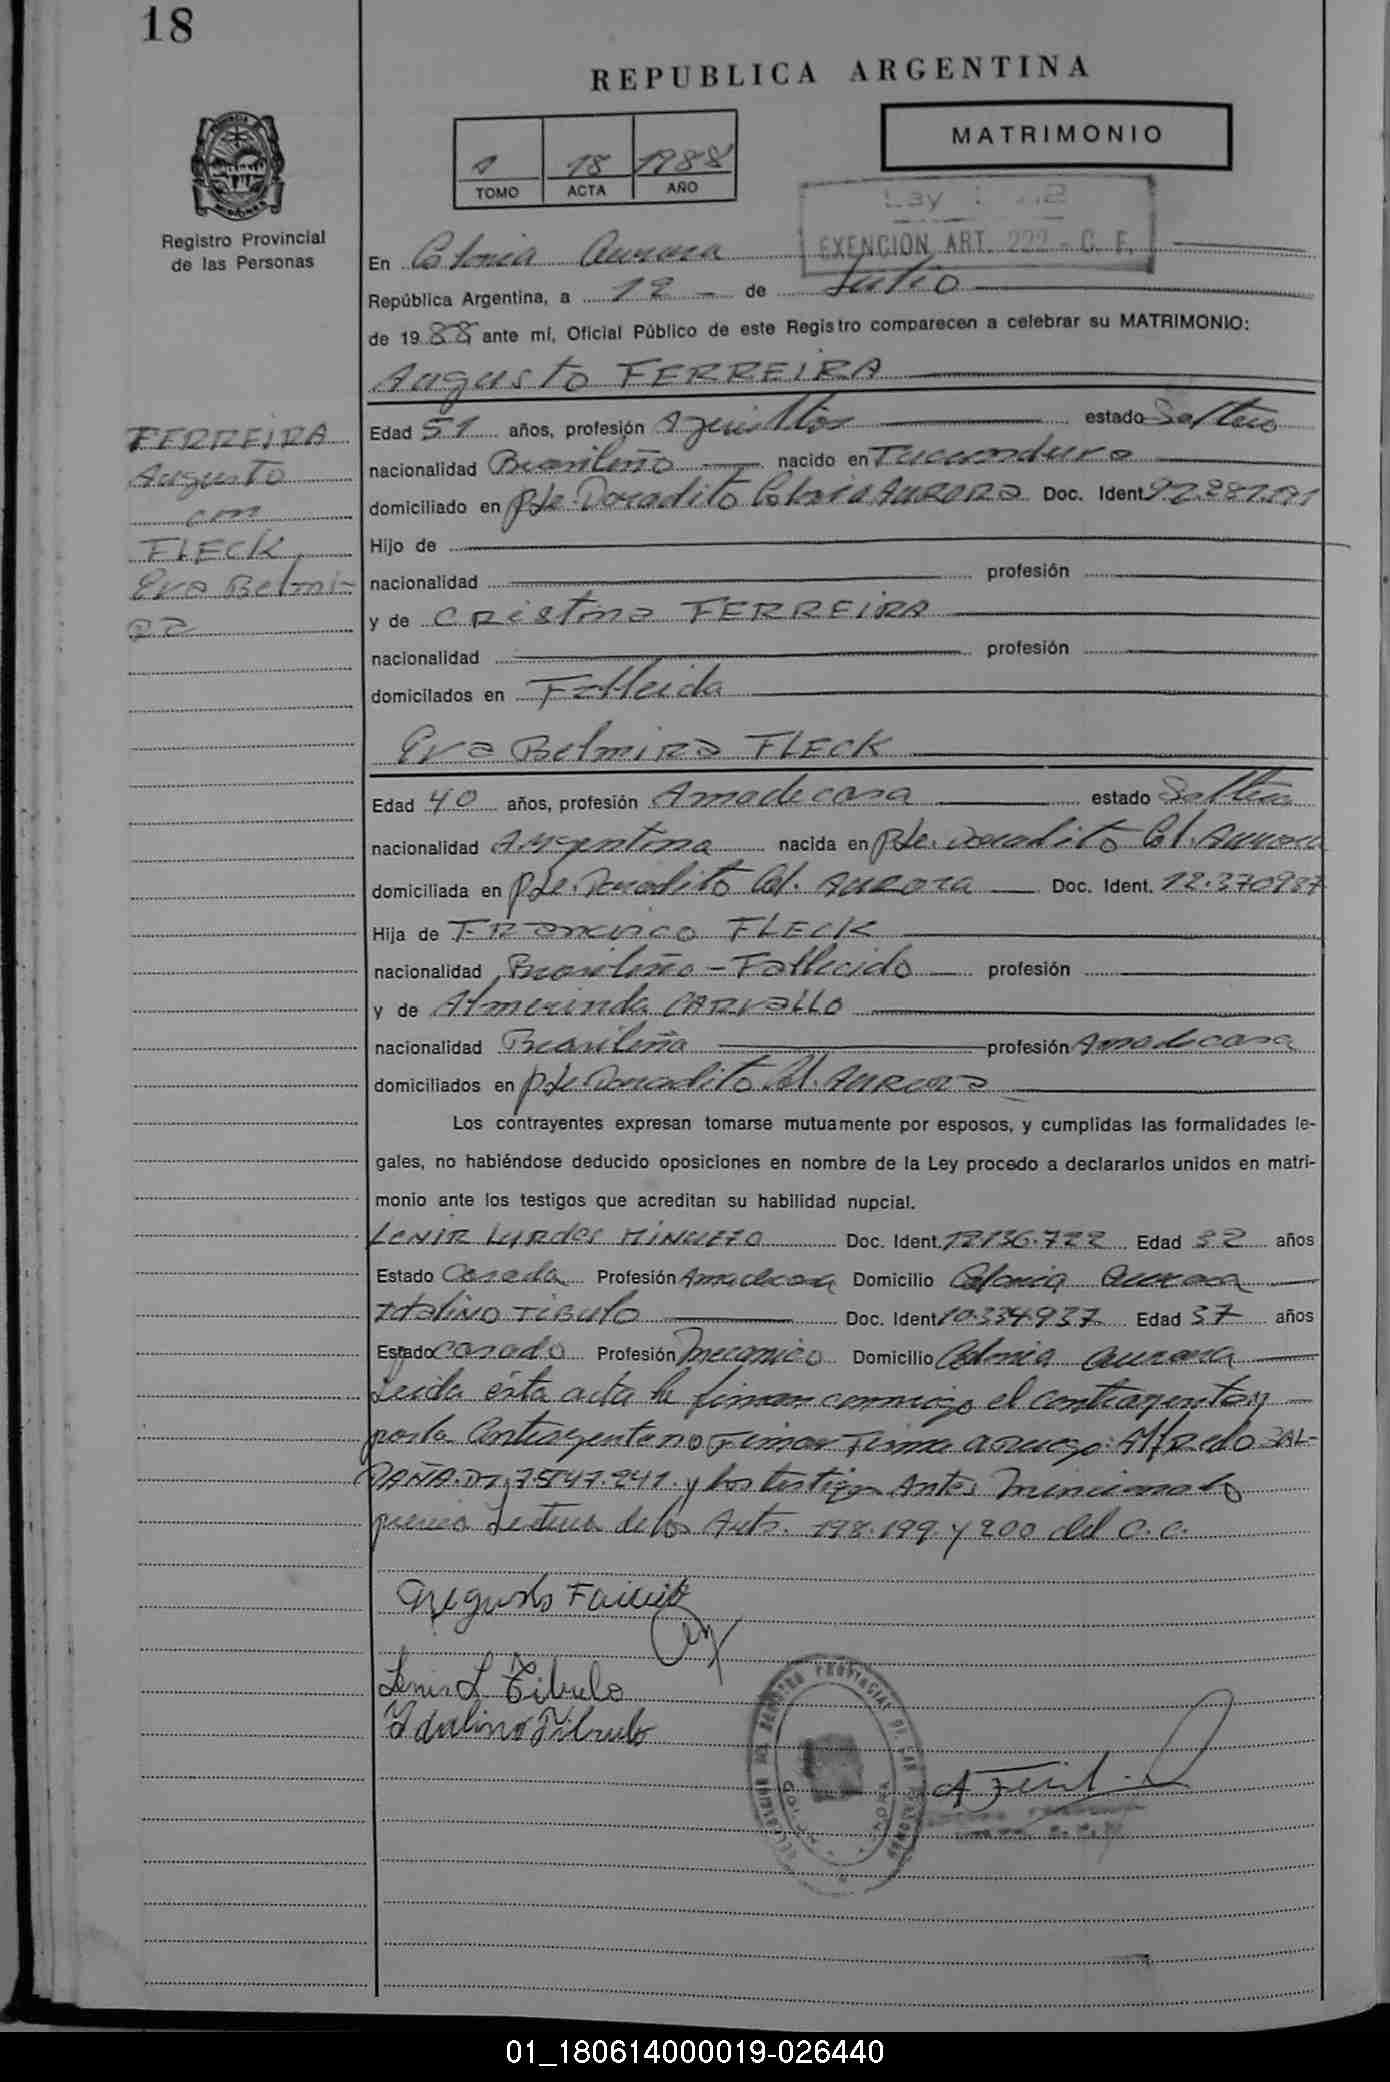 18
REPUBLICA ARGENTINA
MATRIMONIO
1 18 1988
TOMO ACTA AÑO
Registro Provincial
de las Personas
EXENCION ART. 222 - C. F.
En Colonia Aurora
República Argentina, a 12 - de Julio
de 1988 ante mí, Oficial Público de este Registro comparecen a celebrar su MATRIMONIO:
Augusto FERREIRA
FERREIRA
Augusto
con
FLECK
Eva Belmi-
ra
Edad 51 años, profesión Agricultor estado Soltero
nacionalidad Brasileño nacido en Tucunduva
domiciliado en Pje. Doradito Colonia AURORA Doc. Ident. 92.287.191
Hijo de
nacionalidad profesión
y de Cristina FERREIRA
nacionalidad profesión
domicilados en Fallecida
Eva Belmira FLECK
Edad 40 años, profesión Ama de casa estado Soltera
nacionalidad Argentina nacida en Pje. Doradito Col. Aurora
domiciliada en Pje. Doradito Col. AURORA Doc. Ident. 12.370987
Hija de Francisco FLECK
nacionalidad Brasileño - Fallecido profesión
y de Almerinda CARVALLO
nacionalidad Brasileña profesión Ama de casa
domiciliados en Pje Doradito Col. AURORA
Los contrayentes expresan tomarse mutuamente por esposos, y cumplidas las formalidades le-
gales, no habiéndose deducido oposiciones en nombre de la Ley procedo a declararlos unidos en matri-
monio ante los testigos que acreditan su habilidad nupcial.
LENIR Lurdes Doc. Ident. 12136.722 Edad 32 años
Estado Casada Profesión Ama de casa Domicilio Colonia Aurora
Idalino TIBULO Doc. Ident. 10.334.937 Edad 37 años
Estado Casado Profesión Mecanico Domicilio Colonia Aurora
Leida ésta acta la firman conmigo el contrayente y
por la Contrayente no Firmar Firma a ruego: Alfredo SAL-
DAÑA. DI. 7.547.241. y los testigos Antes Mencionado
previa Lectura de los Arts. 198.199 y 200 del C.C.
Lenir L Tibulo
Idalino Tibulo
01_180614000019-026440